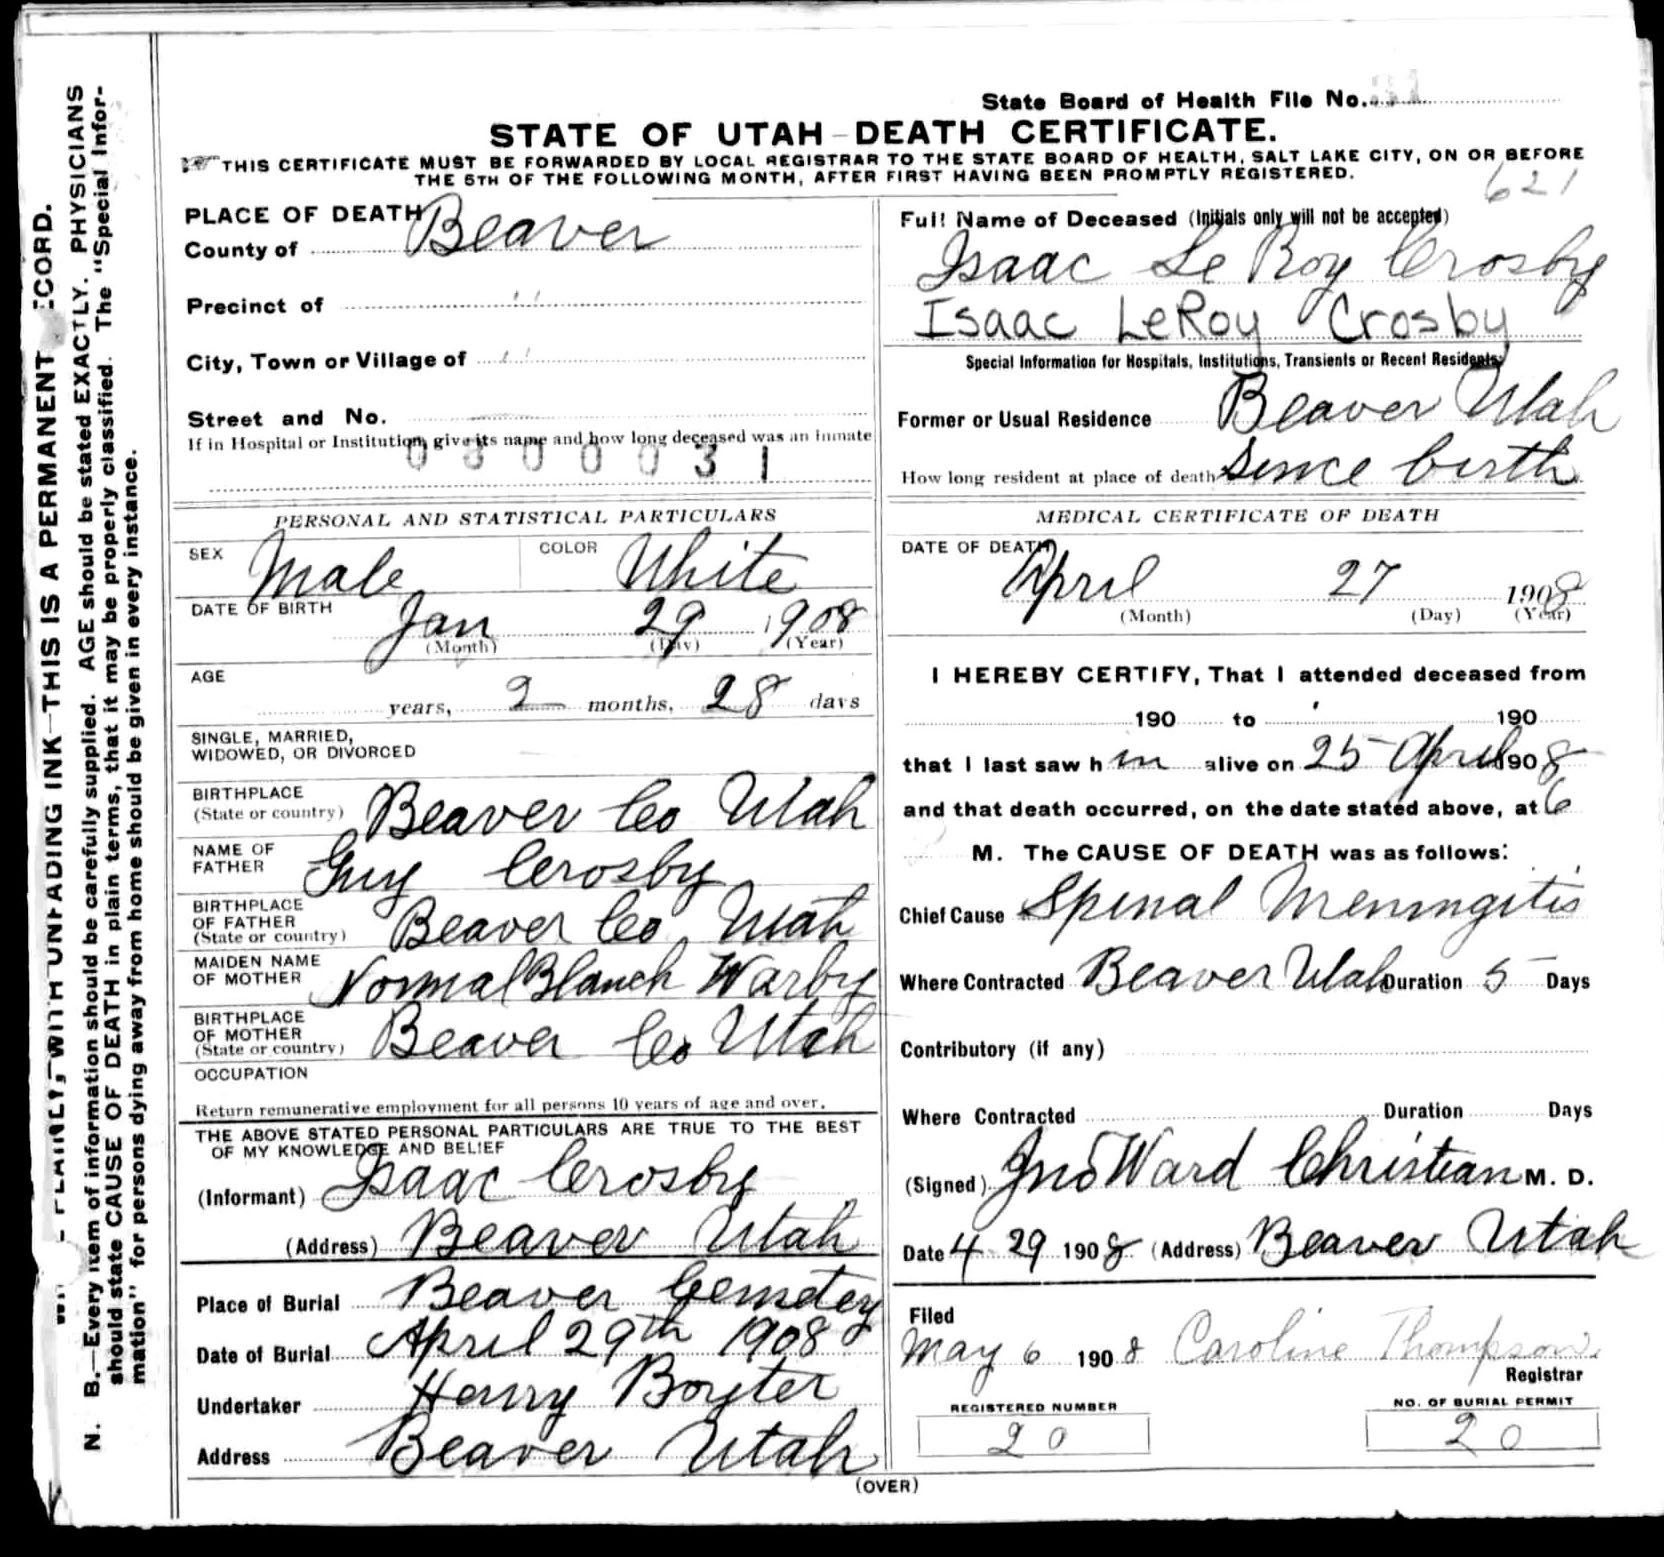 State Board of Health File No. 31
STATE OF UTAH—DEATH CERTIFICATE.
THIS CERTIFICATE MUST BE FORWARDED BY LOCAL REGISTRAR TO THE STATE BOARD OF HEALTH, SALT LAKE CITY, ON OR BEFORE
THE 5TH OF THE FOLLOWING MONTH, AFTER FIRST HAVING BEEN PROMPTLY REGISTERED.
621
PLACE OF DEATH
County of Beaver
Precinct of "
City, Town or Village of "
Street and No.
If in Hospital or Institution, give its name and how long deceased was an inmate
0800031
PERSONAL AND STATISTICAL PARTICULARS
SEX Male COLOR White
DATE OF BIRTH Jan 29 1908
(Month) (Day) (Year)
AGE
years, 2 months, 28 days
SINGLE, MARRIED,
WIDOWED, OR DIVORCED
BIRTHPLACE
(State or country) Beaver Co Utah
NAME OF
FATHER Guy Crosby
BIRTHPLACE
OF FATHER
(State or country) Beaver Co Utah
MAIDEN NAME
OF MOTHER Normal Blanch Warby
BIRTHPLACE
OF MOTHER
(State or country) Beaver Co Utah
OCCUPATION
Return remunerative employment for all persons 10 years of age and over.
THE ABOVE STATED PERSONAL PARTICULARS ARE TRUE TO THE BEST
OF MY KNOWLEDGE AND BELIEF
(Informant) Isaac Crosby
(Address) Beaver Utah
Place of Burial Beaver Cemetey
Date of Burial April 29th 1908
Undertaker Henry Boyter
Address Beaver Utah
Full Name of Deceased (Initials only will not be accepted)
Isaac Le Roy Crosby
Isaac LeRoy Crosby
Special Information for Hospitals, Institutions, Transients or Recent Residents
Former or Usual Residence Beaver Utah
How long resident at place of death Since birth
MEDICAL CERTIFICATE OF DEATH
DATE OF DEATH
April 27 1908
(Month) (Day) (Year)
I HEREBY CERTIFY, That I attended deceased from
190 to 190
that I last saw h im alive on 25 April 1908
and that death occurred, on the date stated above, at 6
M. The CAUSE OF DEATH was as follows:
Chief Cause Spinal Meningitis
Where Contracted Beaver Utah Duration 5 Days
Contributory (if any)
Where Contracted Duration Days
(Signed) Jno Ward Christian M. D.
Date 4 29 1908 (Address) Beaver Utah
Filed
May 6 1908 Caroline Thompson
Registrar
REGISTERED NUMBER NO. OF BURIAL PERMIT
20 20
(OVER)
PLAINLY, WITH UNFADING INK—THIS IS A PERMANENT
N. B.—Every item of information should be carefully supplied. AGE should be stated EXACTLY. PHYSICIANS
should state CAUSE OF DEATH in plain terms, that it may be properly classified. The "Special Infor-
mation" for persons dying away from home should be given in every instance.